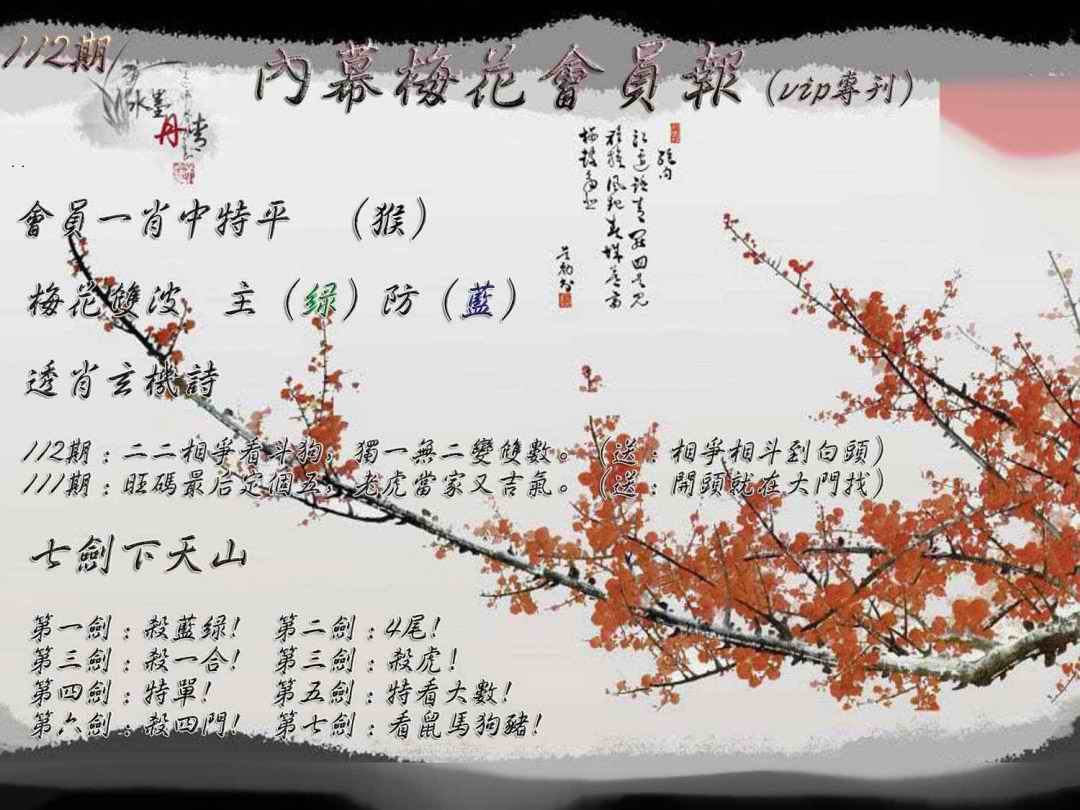 112期
內幕梅花會員報（vip專刊）
水墨
丹青
會員一肖中特平 （猴）
梅花雙波 主（绿）防（藍）
透肖玄機詩
112期：二二相爭看斗狗，獨一無二變雙數。（送：相爭相斗到白頭）
111期：旺碼最后定個五，老虎當家又吉氣。（送：開頭就在大門找）
七劍下天山
第一劍：殺藍绿! 第二劍：4尾!
第三劍：殺一合! 第三劍：殺虎!
第四劍：特單! 第五劍：特看大數!
第六劍：殺四門! 第七劍：看鼠馬狗豬!